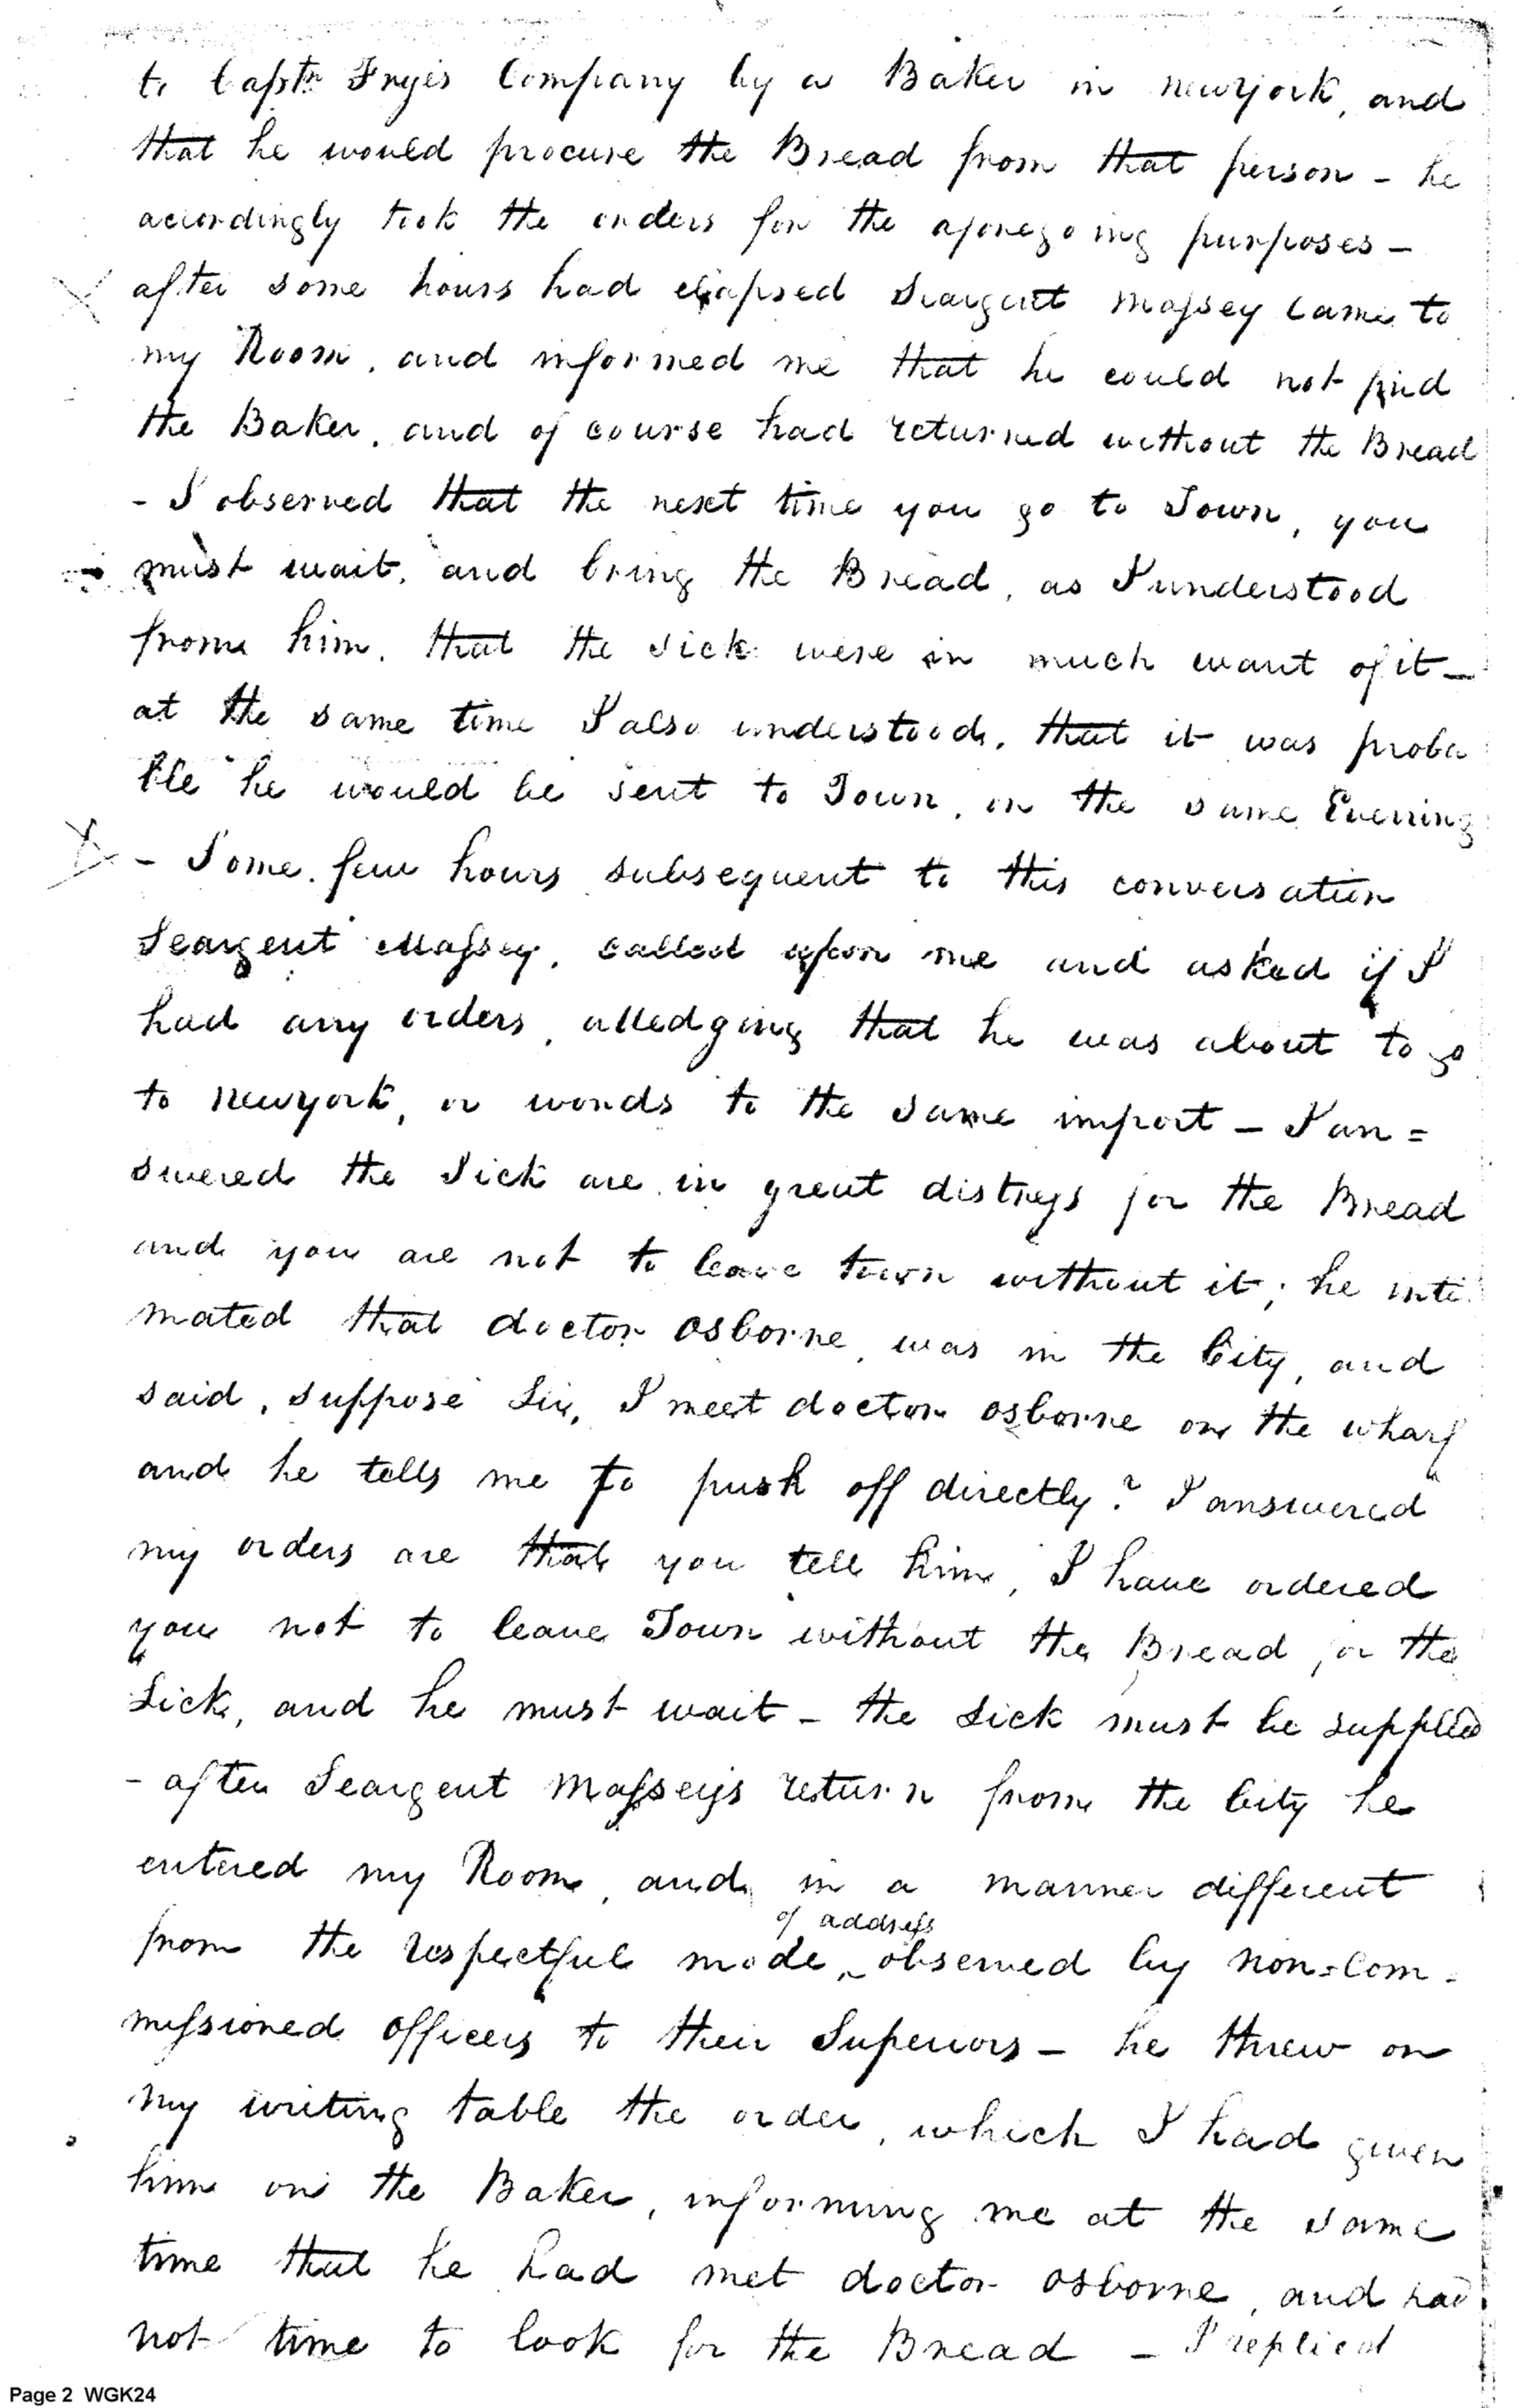 to Captn Fryes Company by a Baker in newyork, and
that he would procure the Bread from that person - he
accordingly took the orders for the aforegoing purposes -
after some hours had elapsed Seargent Massey came to
my Room, and informed me that he could not find
the Baker, and of course had returned without the Bread
- I observed that the next time you go to Town, you
must wait, and bring the Bread, as I understood
from him, that the sick were in much want of it -
at the same time I also understood, that it was proba
ble he would be sent to Town, in the same Evening
- Some few hours subsequent to this conversation
Seargent Massey, called upon me and asked if I
had any orders, alledging that he was about to go
to newyork, or words to the same import - I an=
swered the Sick are in great distress for the Bread
and you are not to leave town without it; he inti
mated that doctor osborne, was in the City, and
said, suppose Sir, I meet doctor osborne on the wharf
and he tells me to push off directly? I answered
my orders are that you tell him, I have ordered
you not to leave Town without the Bread for the
Sick, and he must wait - the Sick must be supplied
- after Seargent Masseys return from the City he
entered my Room, and in a manner different
from the respectful mode of address observed by non=com-
missioned officers to their Superiors - he threw on
my writing table the order, which I had given
him on the Baker, informing me at the same
time that he had met doctor osborne, and had
not time to look for the Bread - I replied
Page 2 WGK24